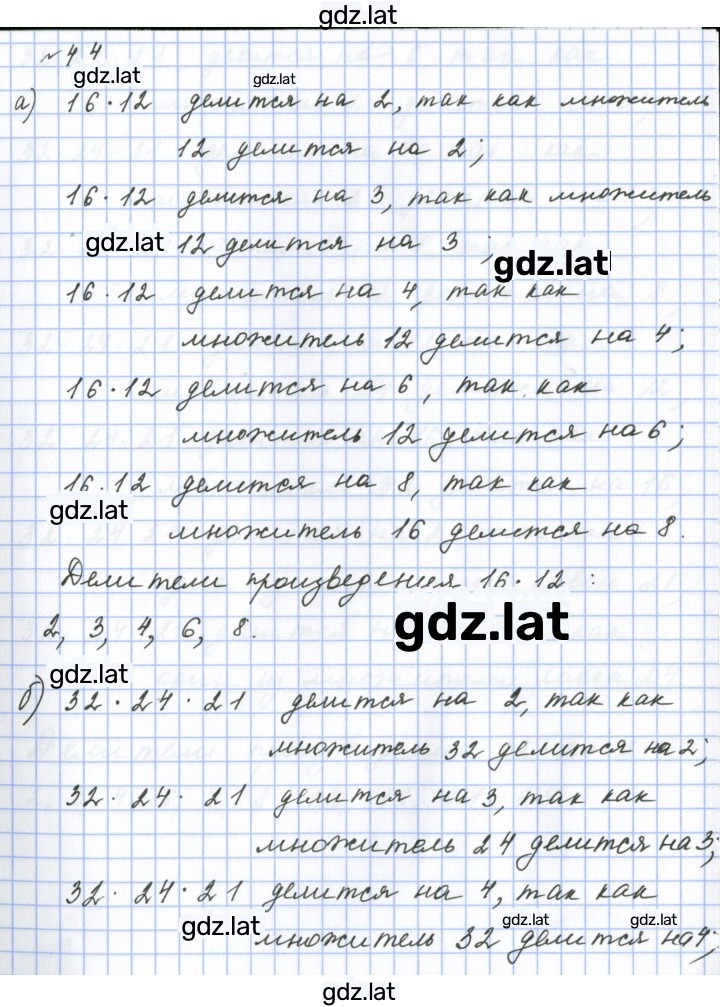 gdz.lat
№ 44
gdz.lat
gdz.lat
а) 16·12 делится на 2, так как множитель
12 делится на 2;
16·12 делится на 3, так как множитель
gdz.lat 12 делится на 3 ;
gdz.lat
16·12 делится на 4, так как
множитель 12 делится на 4;
16·12 делится на 6, так как
множитель 12 делится на 6;
16·12 делится на 8, так как
gdz.lat
множитель 16 делится на 8.
Делители произведения 16·12 :
2, 3, 4, 6, 8.
gdz.lat
gdz.lat
б) 32·24·21 делится на 2, так как
множитель 32 делится на 2;
32·24·21 делится на 3, так как
множитель 24 делится на 3;
32·24·21 делится на 4, так как
gdz.lat
gdz.lat
gdz.lat
множитель 32 делится на 4;
gdz.lat